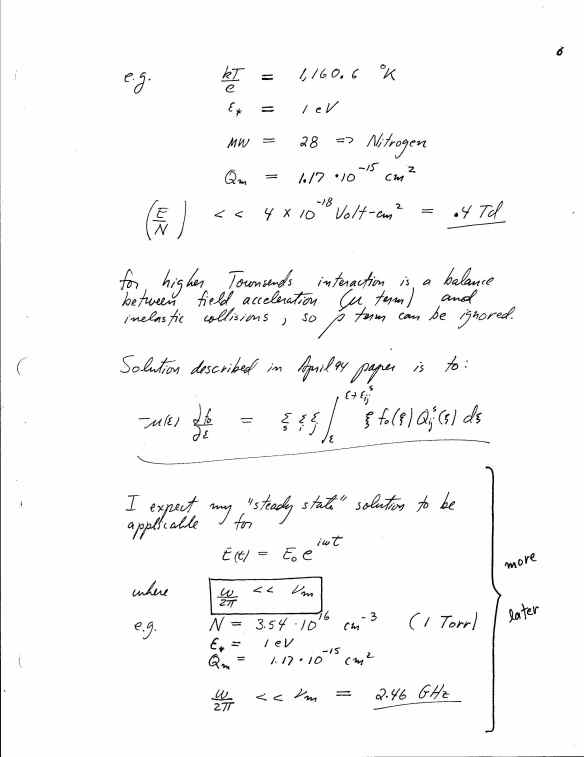 6
e.g. kT/e = 1,160.6 °K
ε* = 1 eV
MW = 28 => Nitrogen
Qm = 1.17 · 10^-15 cm^2
(E/N) << 4 × 10^-18 Volt-cm^2 = .4 Td
for higher Townsends interaction is a balance
between field acceleration (μ term) and
inelastic collisions, so ρ term can be ignored.
Solution described in April 94 paper is to:
-μ(ε) ∂f₀/∂ε = Σ_s Σ_i Σ_j ∫_ε^(ε+ε_ij^s) ξ f₀(ξ) Q_ij^s(ξ) dξ
I expect my "steady state" solution to be
applicable for
E(t) = E₀ e^iωt
more
where ω/2π << νm
later
e.g. N = 3.54 · 10^16 cm^-3 (1 Torr)
ε* = 1 eV
Qm = 1.17 · 10^-15 cm^2
ω/2π << νm = 2.46 GHz